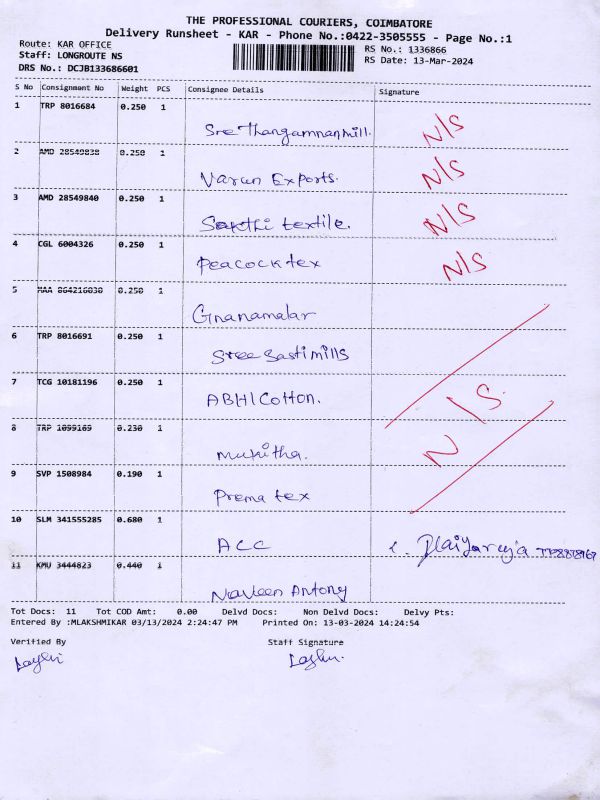 THE PROFESSIONAL COURIERS, COIMBATORE
Delivery Runsheet - KAR - Phone No.:0422-3505555 - Page No.:1
Route: KAR OFFICE RS No.: 1336866
Staff: LONGROUTE NS RS Date: 13-Mar-2024
DRS No.: DCJB133686601
S No Consignment No Weight PCS Consignee Details Signature
1 TRP 8016684 0.250 1
Sree Thangamman mill. N/S
2 AMD 28549838 0.250 1
Varun Exports. N/S
3 AMD 28549840 0.250 1
Sakthi textile. N/S
4 CGL 6004326 0.250 1
Peacock tex N/S
5 MAA 864216030 0.250 1
Gnanamalar
6 TRP 8016691 0.250 1
Sree Sasti mills
7 TCG 10181196 0.250 1
ABHI Cotton. N/S.
8 TRP 1099169 0.230 1
Mukitha.
9 SVP 1508984 0.190 1
Prema tex
10 SLM 341555285 0.680 1
ACC
11 KMU 3444823 0.440 1
Naveen Antony
Tot Docs: 11 Tot COD Amt: 0.00 Delvd Docs: Non Delvd Docs: Delvy Pts:
Entered By :MLAKSHMIKAR 03/13/2024 2:24:47 PM Printed On: 13-03-2024 14:24:54
Verified By Staff Signature